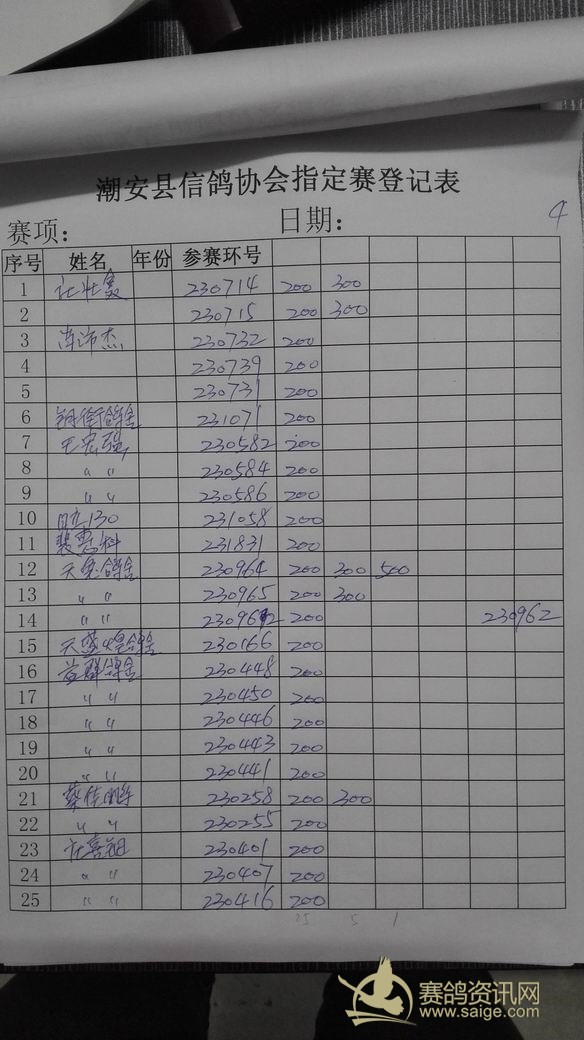 潮安县信鸽协会指定赛登记表
4
赛项: 日期:
序号 姓名 年份 参赛环号
1 230714 200 300
2 230715 200 300
3 230732 200
4 230739 200
5 230731 200
6 231071 200
7 王宏强 230582 200
8 〃 〃 230584 200
9 〃 〃 230586 200
10 130 231058 200
11 裴惠科 231831 200
12 230964 200 300 500
13 〃 〃 230965 200 300
14 〃 〃 230962 200 230962
15 230166 200
16 益群鸽舍 230448 200
17 〃 〃 230450 200
18 〃 〃 230446 200
19 〃 〃 230443 200
20 〃 〃 230441 200
21 蔡佳鹏 230258 200 300
22 〃 〃 230255 200
23 230401 200
24 〃 〃 230407 200
25 〃 〃 230416 200
25 5 1
赛鸽资讯网
www.saige.com